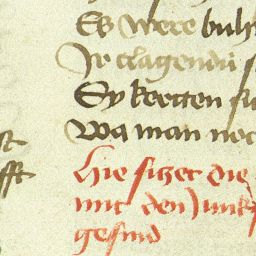 Es were buh
Jr clagendū
Sy kertten
Wa man noc
Hie sitzet die
mit den
gesind
st
fft